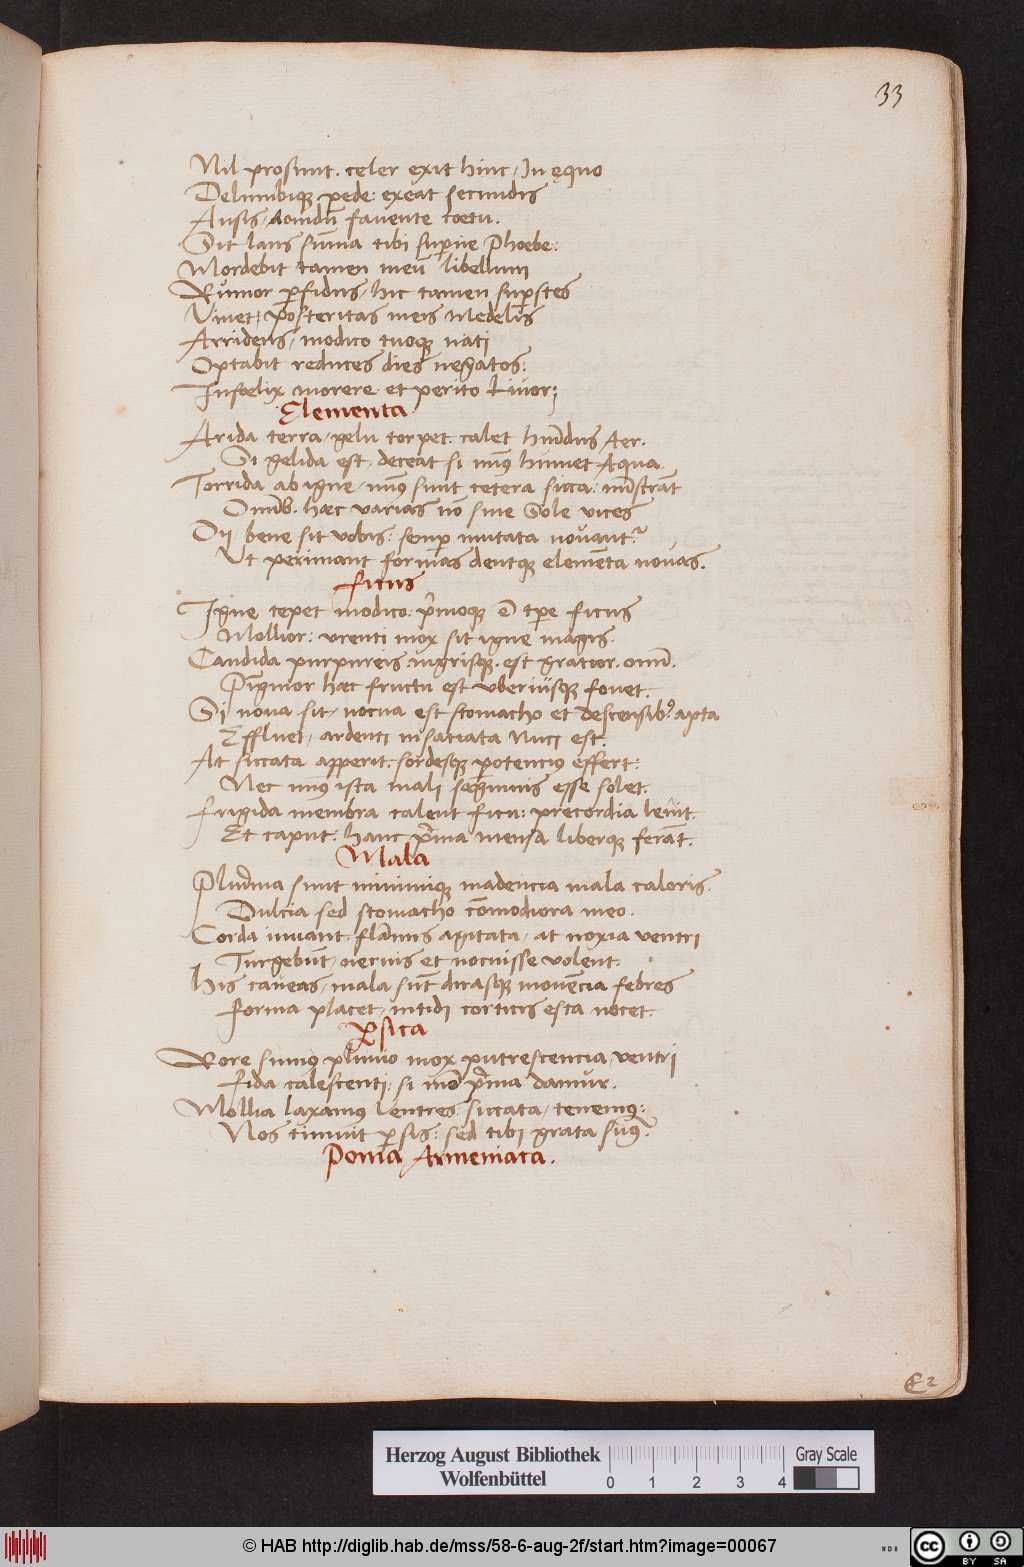 33
Nil prosunt. celer exit hinc, In ęquo
Delumbiqꝫ pede: exeat secundis
Ausis, fauente coetu.
Sit laus sūma tibi superne Phoebe:
Mordebit tamen meū libellum
Rumor ꝑfidus, hic tamen suꝑstes
Viuet, posteritas meis Medelis
Arridens, modico tuoqꝫ nati
Optabit reduces dies negatos:
Infoelix morere et perito Liuor;
Elementa
Arida terra, gelu torpet. calet hūidus Aer.
Si gelida est, deceat si minꝰ humet Aqua.
Torrida ab igne, minꝰ sunt cetera sicca: mīstrant
Omībꝰ. hæc varias nō sine Sole vices
Dij bene sit vobis: semꝑ mutata nouant᷑
Vt perimant formas dentqꝫ elemēta nouas.
Ficus
Igne tepet modico: p̄moqꝫ ē tꝑe ficus
Mollior: vrenti mox sit igne magis.
Candida purpureis nigrisqꝫ. est gratior. omī.
P̄igmor hæc fructu est vberiusqꝫ fouet.
Si noua sit, nocua est stomacho et descensibꝰ apta
Effluet, ardenti insatiata Nuci est.
At siccata apperit. sordesqꝫ potenciꝰ effert:
Nec minꝰ ista mali sæginis esse solet.
Frigida membra calent ficu: precordia lenit.
Et caput: hanc p̄ma mensa liberqꝫ ferāt.
Mala
Pluūma sunt minimiqꝫ madencia mala caloris.
Dulcia sed stomacho cōmodiora meo.
Corda iuuant. flāmis agitata, at noxia ventri
Turgebūt, neruis et nocuisse volent.
His caueas, mala sūt dirasqꝫ mouēcia febres
Forma placet, nitidi corticis esca nocet.
Ꝑsica
Rore sumꝰ pluuio mox putrescencia ventri
Fida calescenti: si mō p̄ma damur.
Mollia laxamꝰ Ventres siccata, tenemꝰ:
Nos timuit ꝑsis: sed tibi grata sumꝰ.
Poma Armeniaca.
E 2
Herzog August Bibliothek
Wolfenbüttel
0 1 2 3 4
Gray Scale
© HAB http://diglib.hab.de/mss/58-6-aug-2f/start.htm?image=00067
cc BY SA